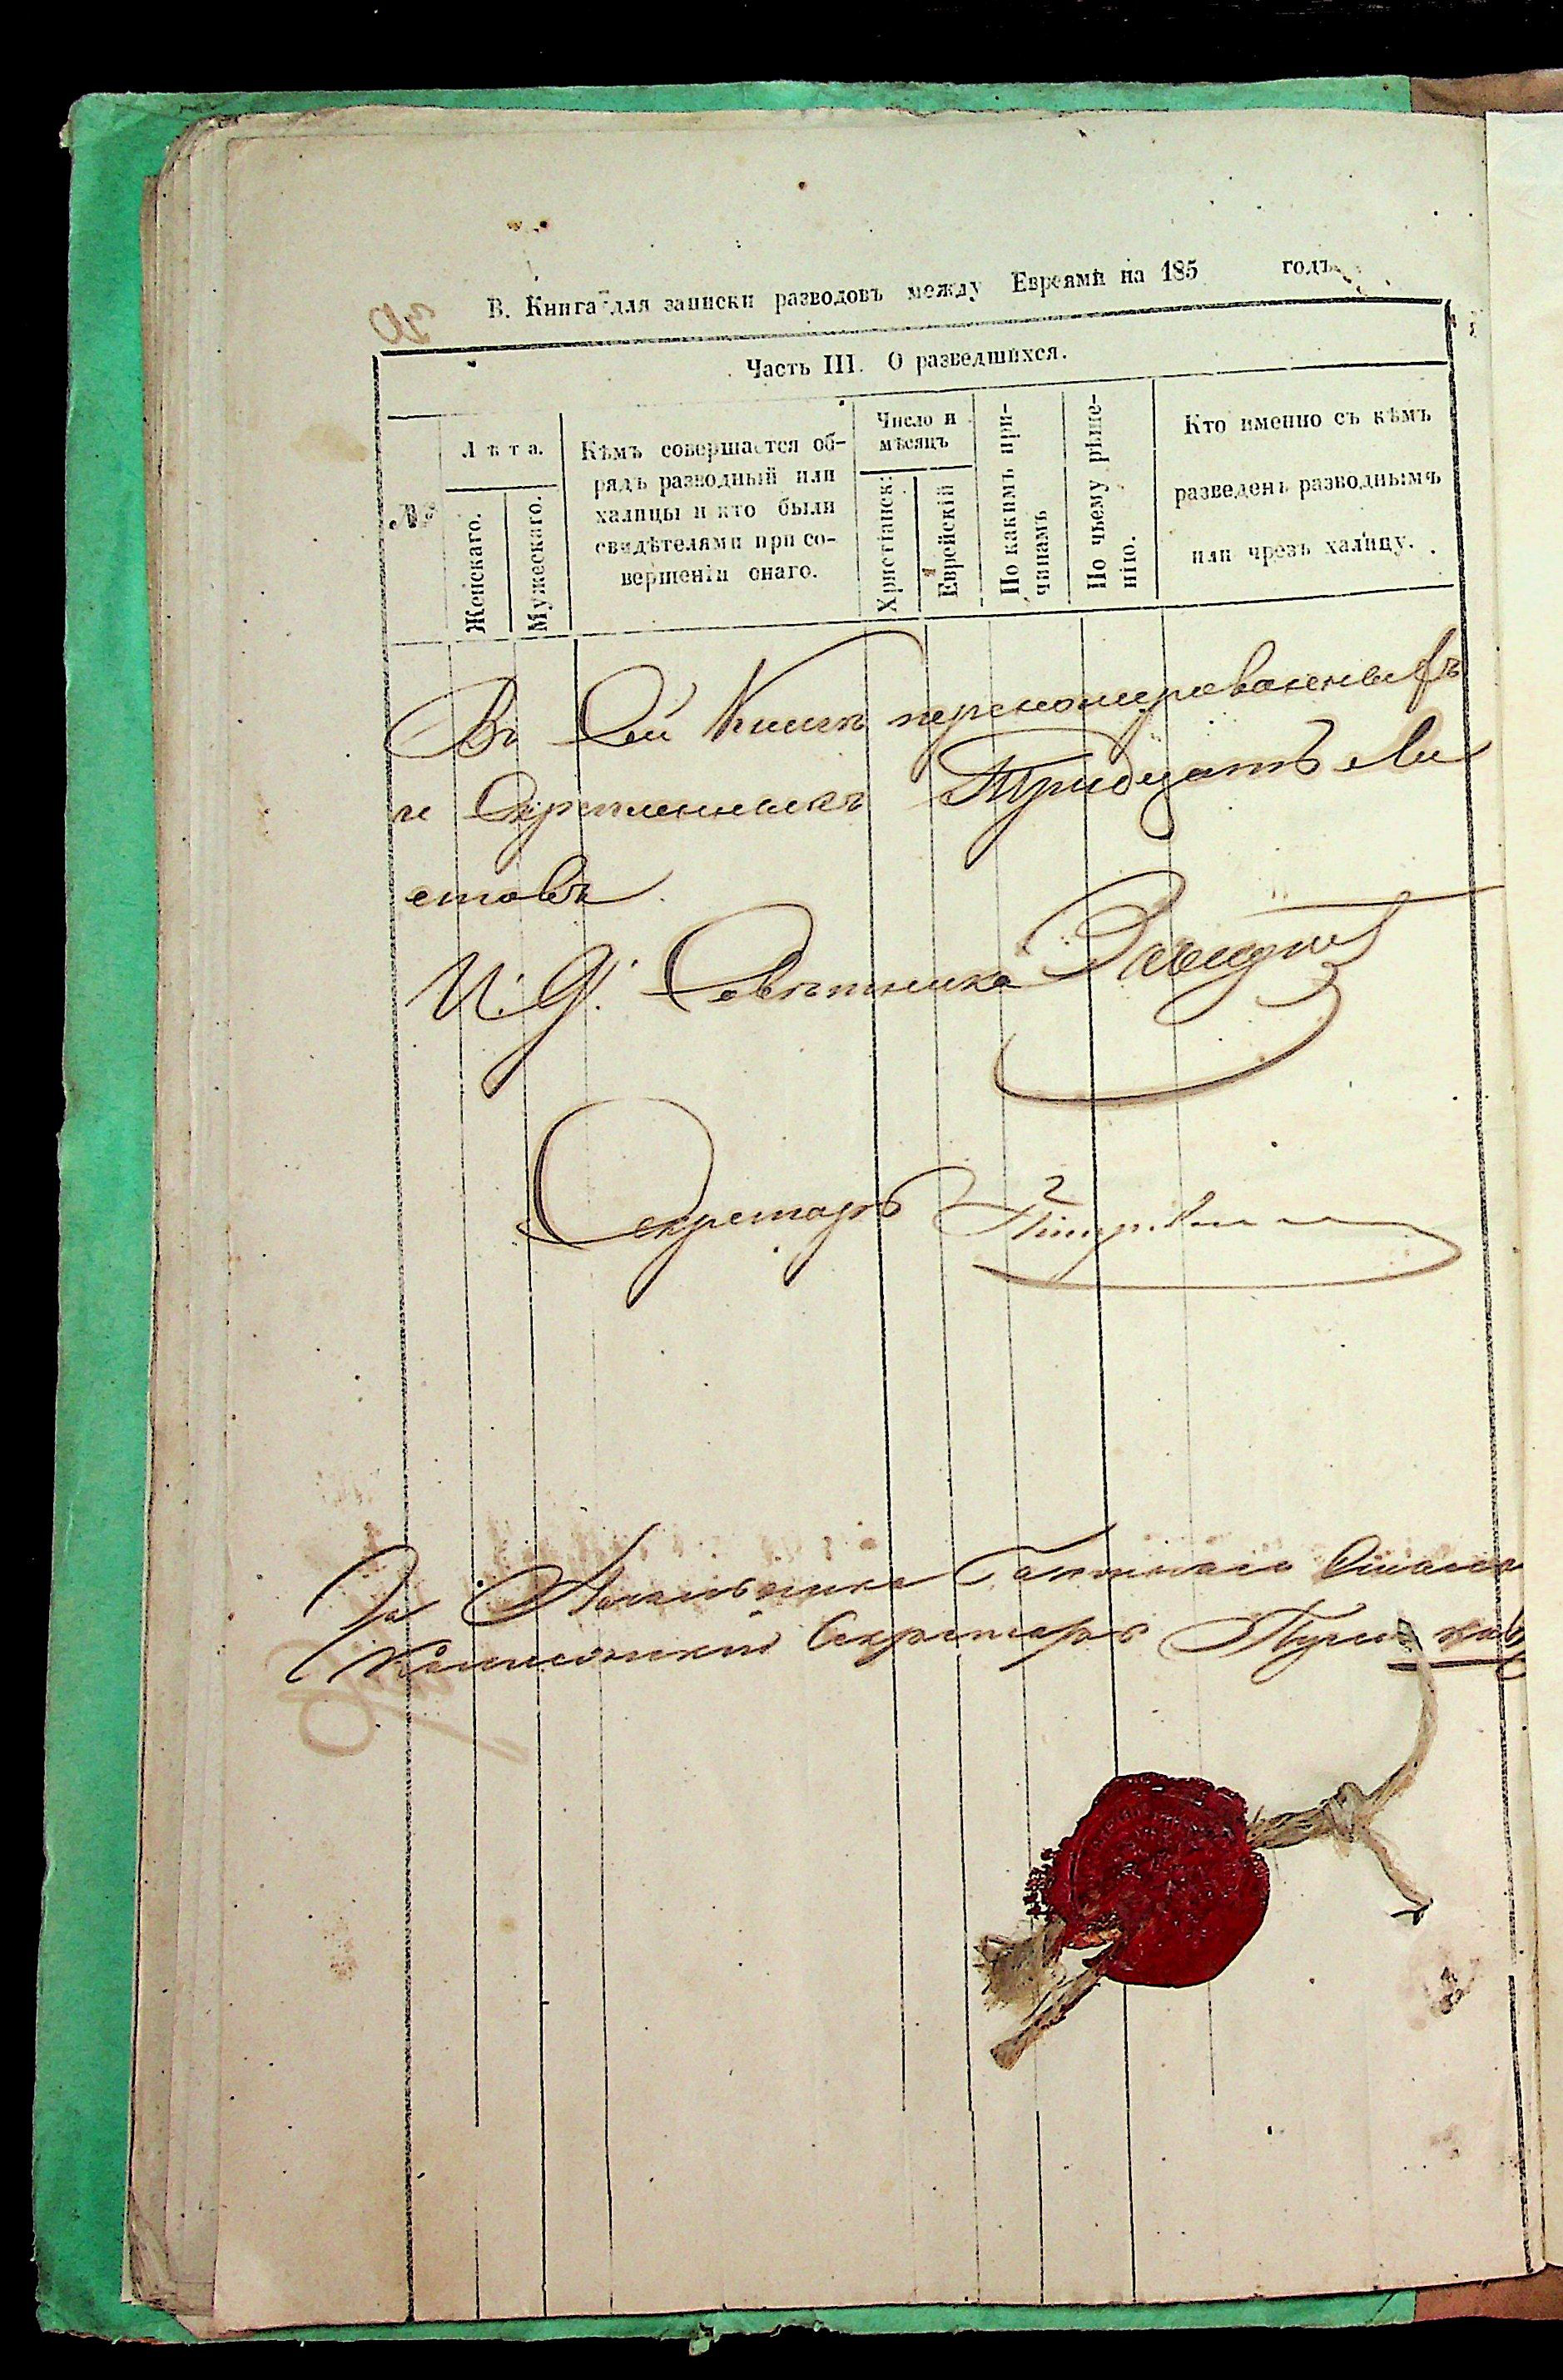 В. Книга для записки разводовъ между Евреями на 185 годъ
Часть III. О разведшихся.
№
Лѣта.
Женскаго.
Мужескаго.
Кѣмъ совершается об-
рядъ разводный или
халицы и кто были
свидѣтелями при со-
вершеніи онаго.
Число и
мѣсяцъ
Христіанск:
Еврейскій
По какимъ при-
чинамъ
По чьему рѣше-
нію.
Кто именно съ кѣмъ
разведенъ разводнымъ
или чрезъ халицу.
Въ Сей Книгѣ перенумерованныхъ
и Скрепленныхъ Тридцать Ли
стовъ
И. Д. Совѣтника
Секретарь
За Начальника Газетнаго Стола
Секретарь